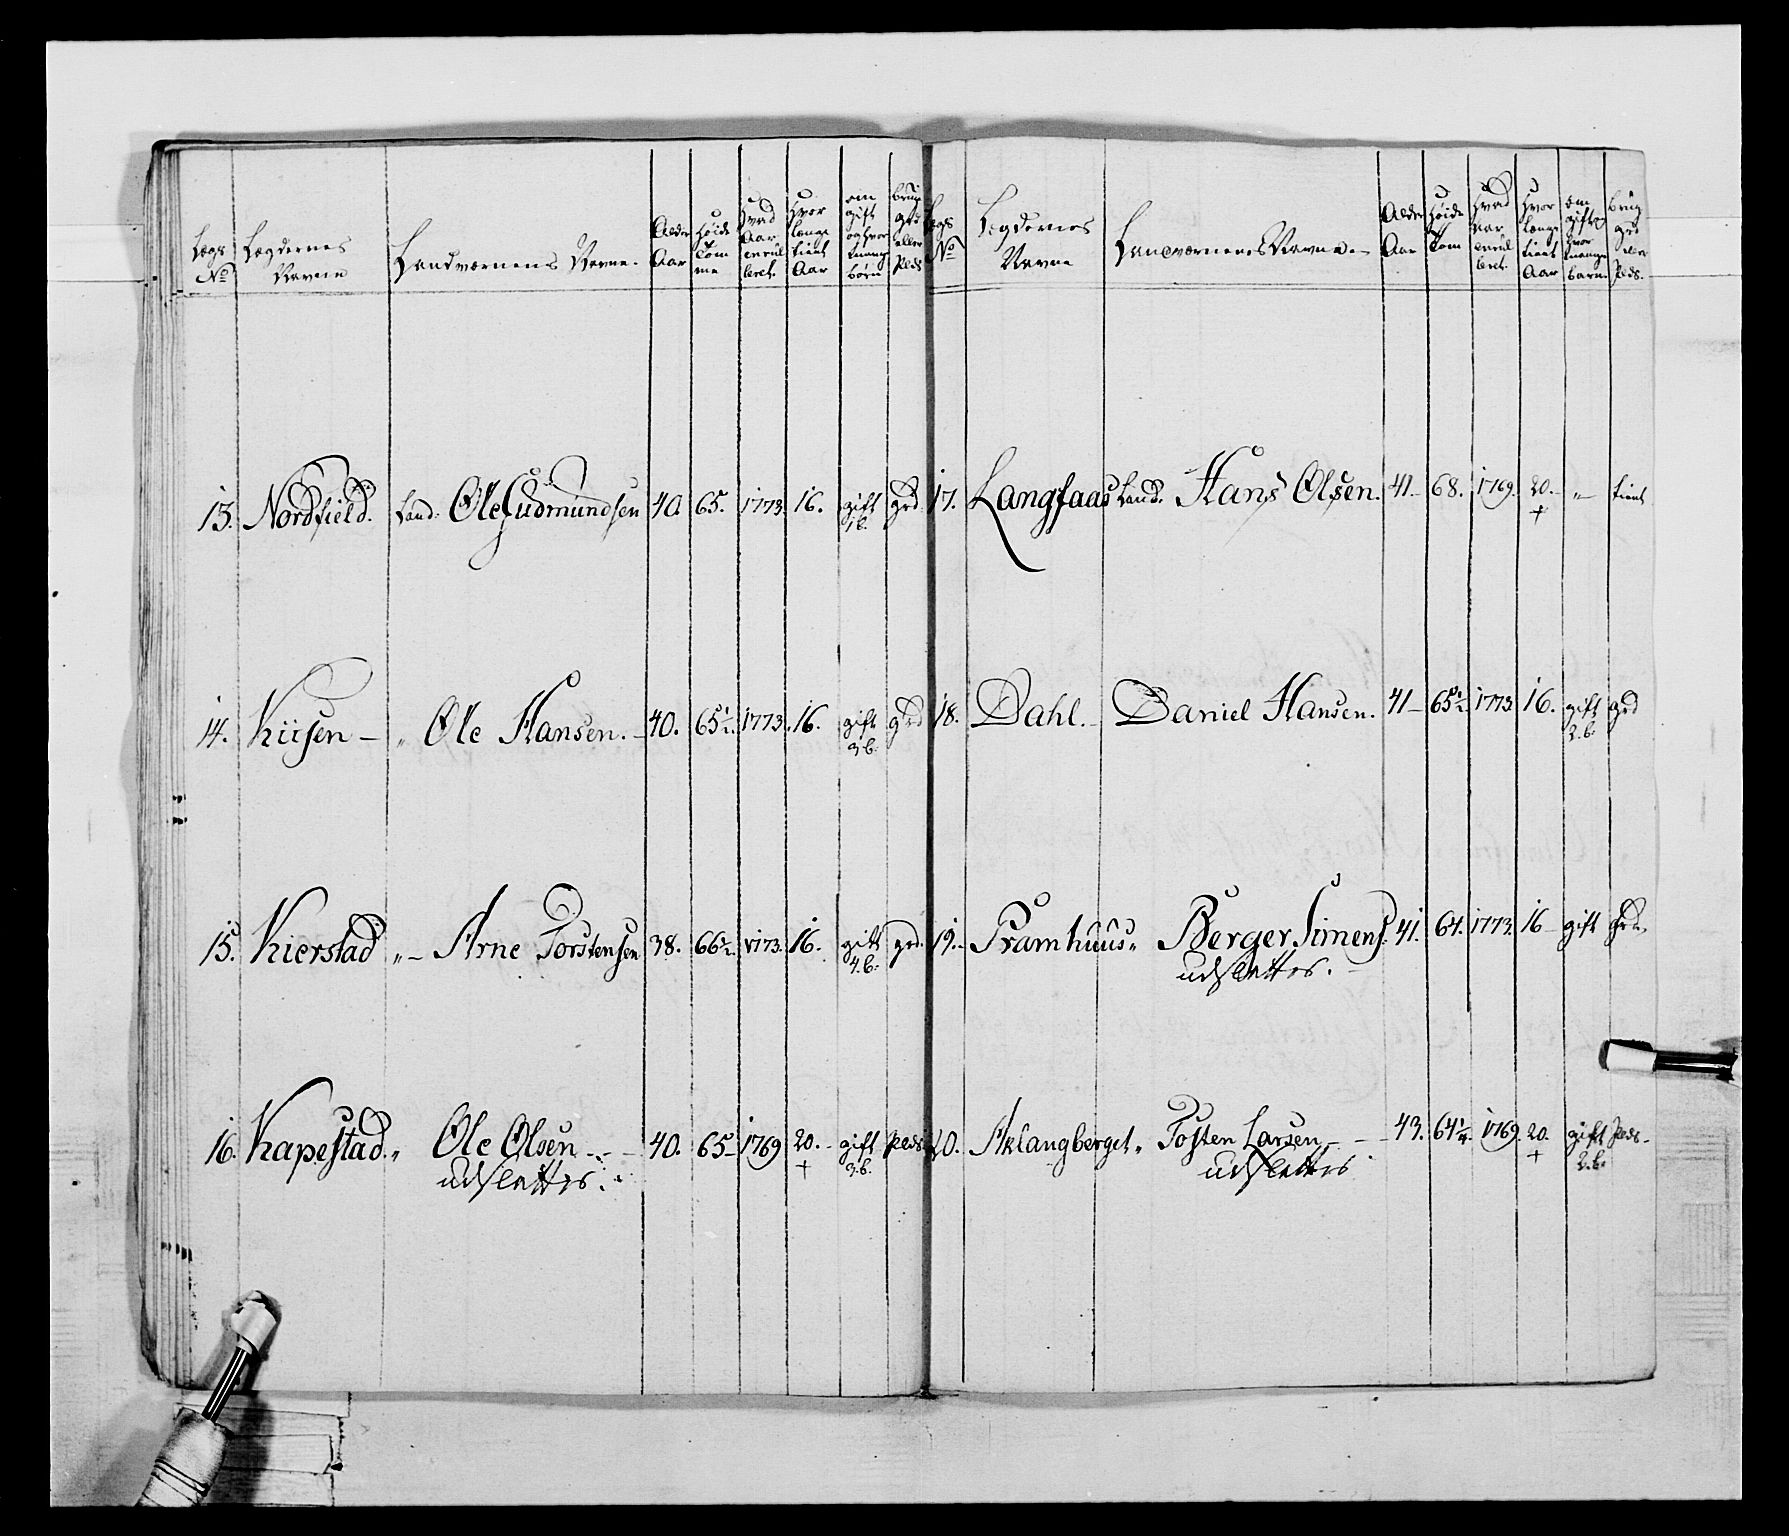 Legs No
Legdernes Navne
Landværnenes Navne.
Alder Aar
Høide Tomme
Hvad Aar enrulleret
Hvor længe tient Aar
om gift og hvor mange børn
brug grd eller Plds
13. Nordfield. Land: Ole Gudmundsen 40. 65. 1773. 16. gift 1 b. grd
14. Kiisen – „ Ole Hansen. – 40. 65½. 1773. 16. gift 3 b. grd
15. Kierstad „ – Arne Torstensen 38. 66½. 1773. 16. gift 4. b. grd.
16. Kapestad. „ Ole Olsen – 40. 65 – 1769 20. – gift 3. b. Plds
+
udslettes.
Legs No
Legdernes Navne
Landværnenes Navne. –
Alder Aar
Høide Tom
Hvad Aar enrulleret
Hvor længe tient Aar
om gift og hvor mange barn
brug grd eller Plds.
17. Langfaas Land. Hans Olsen. 41 – 68. 1769. 20. – „ – tient
+
18. Dahl. – Daniel Hansen. 41 – 65½ 1773 16. gift 2. b. grd
19. – Framhuus „ Berger Simens. 41. 64. 1773. 16 – gift
udslettes. –
20. Aklangberget „ Tosten Larsen – – 43. 64¼. 1769. 20. gift 2. b. Plds –
+
udslettes